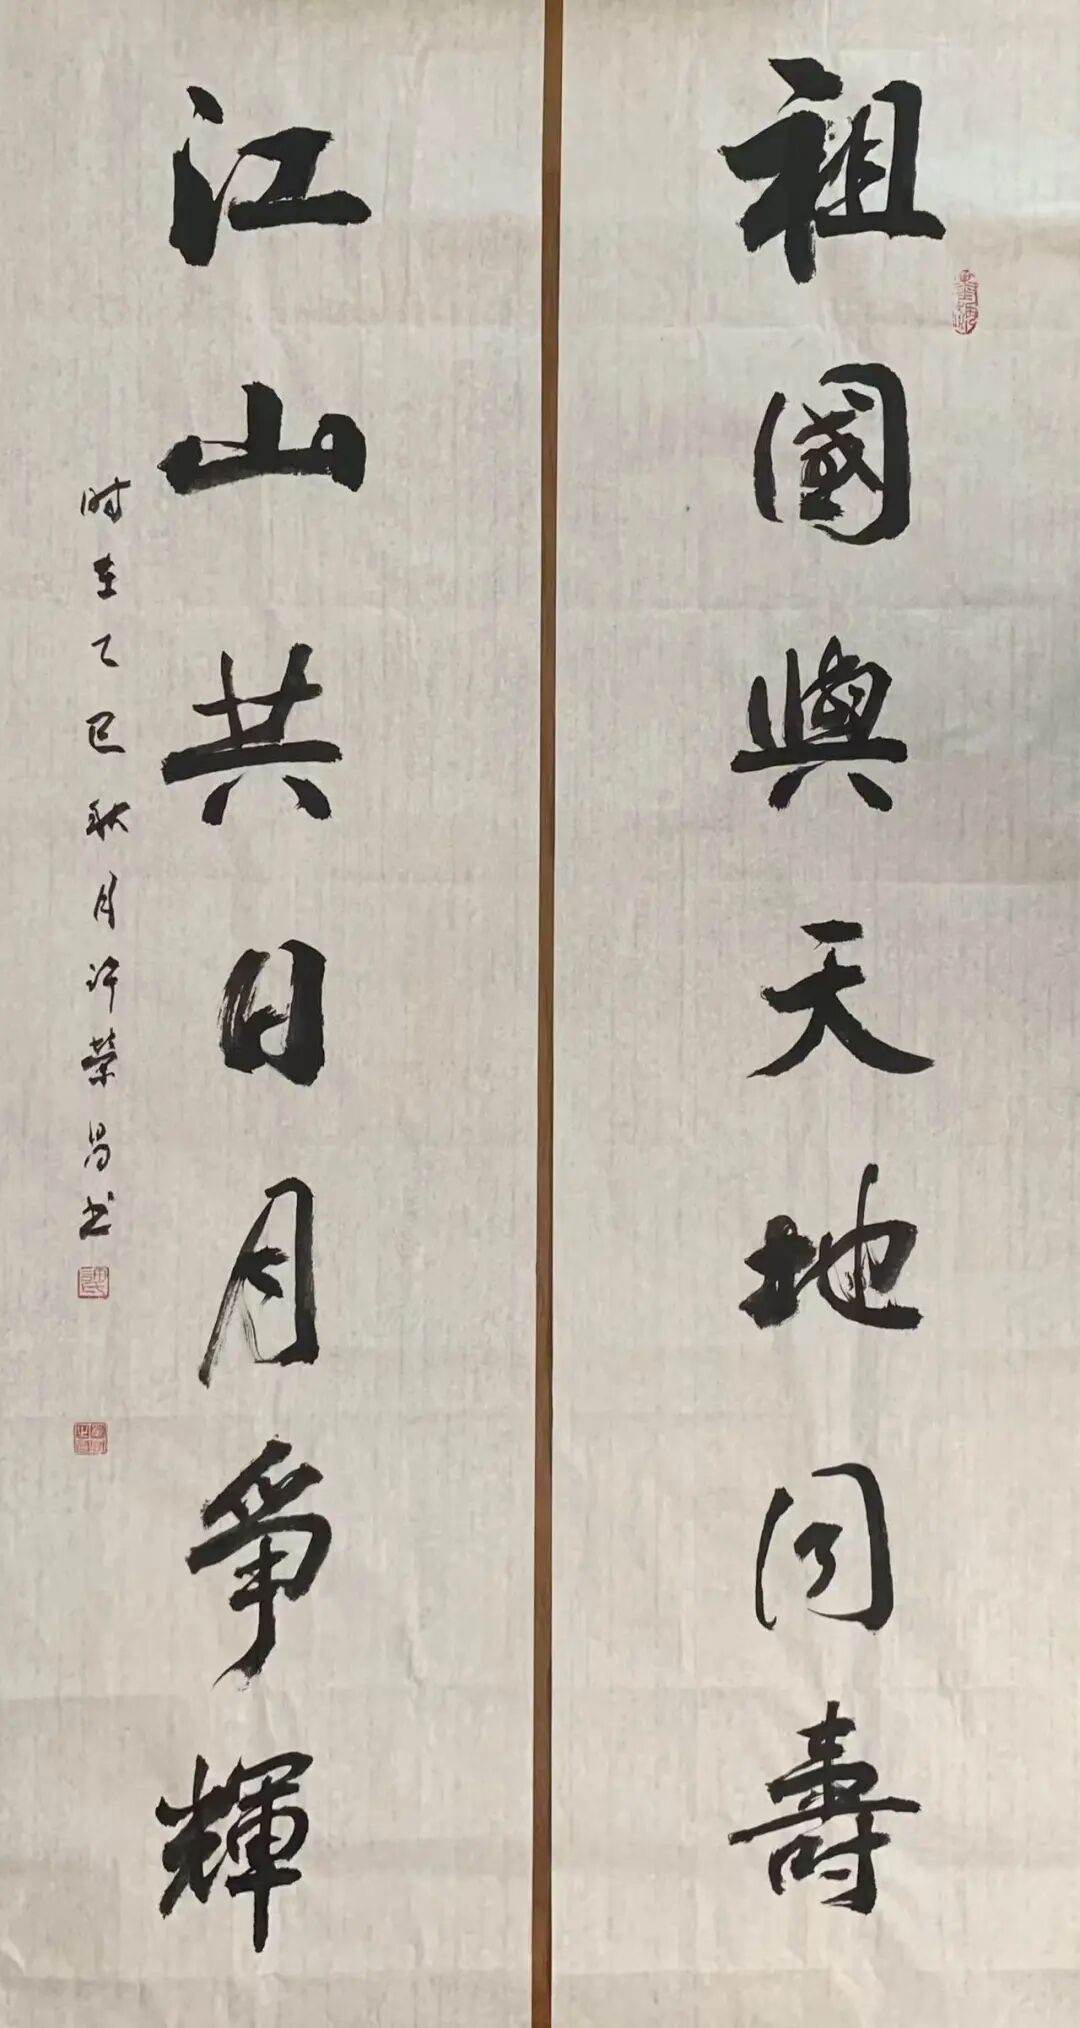 祖國與天地同壽
江山共日月爭輝
时在乙巳秋月许荣昌书